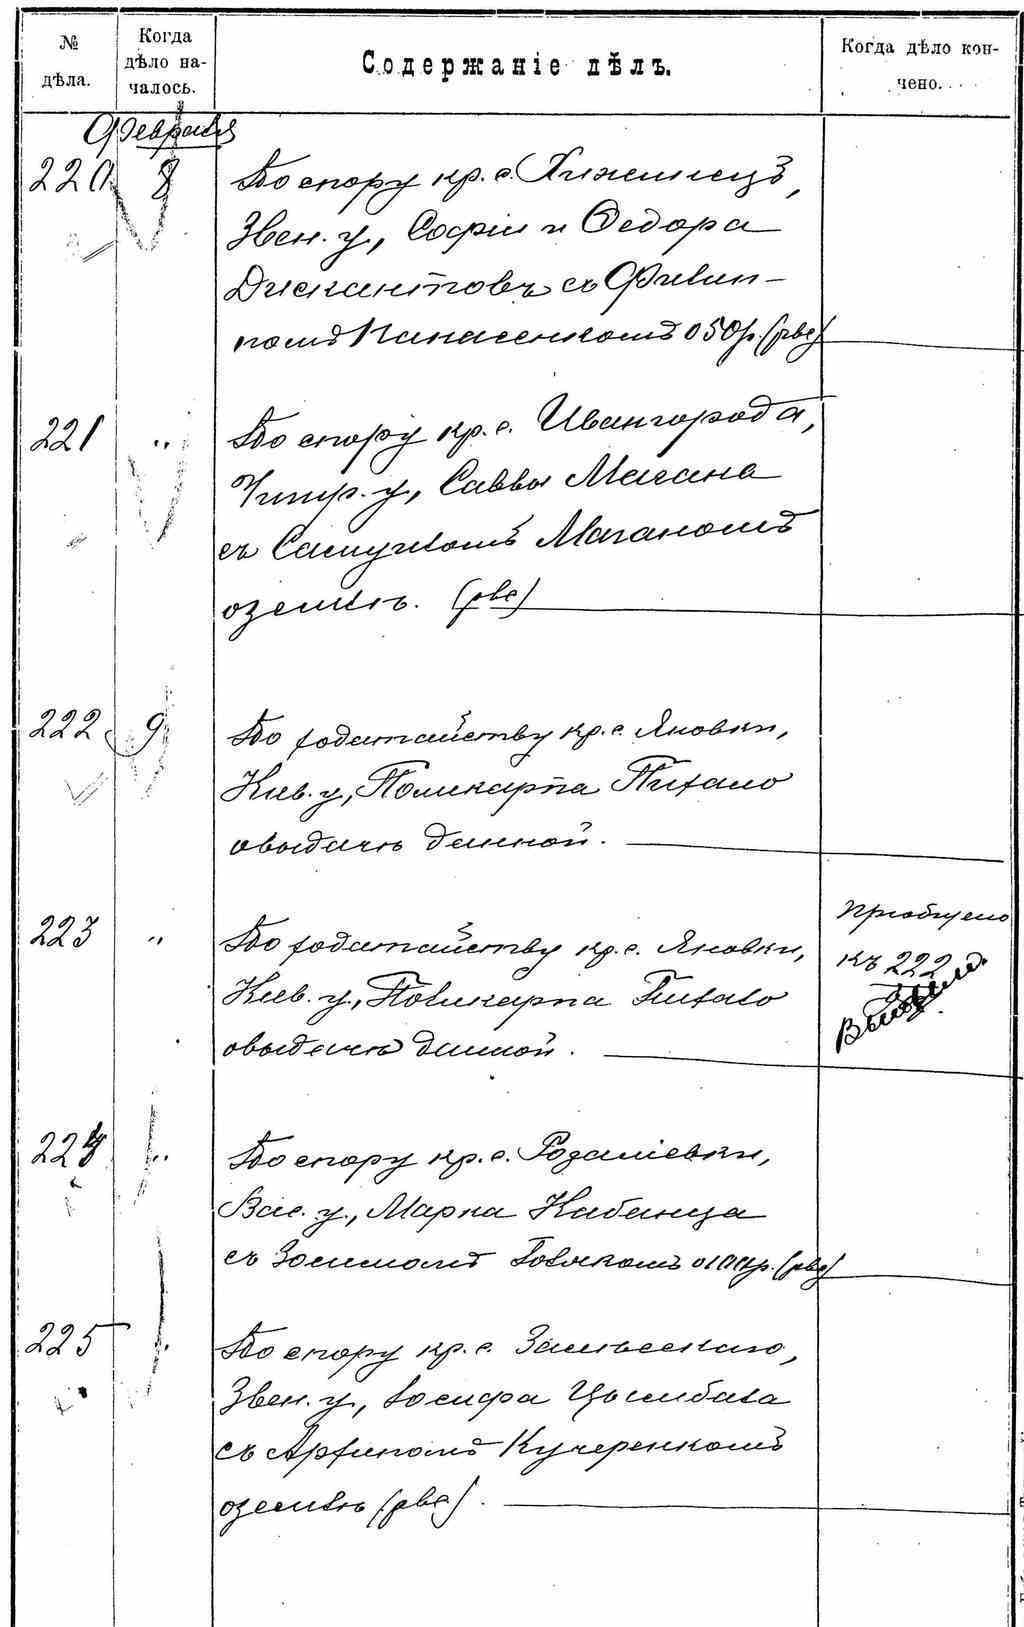 № дѣла.
Когда дѣло на-чалось.
Содержаніе дѣлъ.
Когда дѣло кон-чено.
Февраля
220 8 По спору кр. с. Хижинецъ,
Звен. у., Софіи и Ѳедора
Дискантовъ съ Филип-
помъ Панасенкомъ о 50 р. (рвс)
221 " По спору кр. с. Ивангорода,
Чигир. у., Саввы Магана
съ Самуиломъ Маганомъ
о землѣ. (рвс)
222 9 По ходатайству кр. с. Яновки,
Кіев. у., Поликарпа Пихало
о выдачѣ данной.
223 " По ходатайству кр. с. Яновки,
Кіев. у., Поликарпа Пихало
о выдачѣ данной.
Пріобщено
къ 222
224 " По спору кр. с. Розаліевки,
Вас. у., Марка Кабанца
съ Зосимомъ Поляком о 100 р. (рвс)
225 " По спору кр. с.
Звен. у., Іосифа Цымбала
съ Архипомъ Кучеренкомъ
о землѣ (рвс).